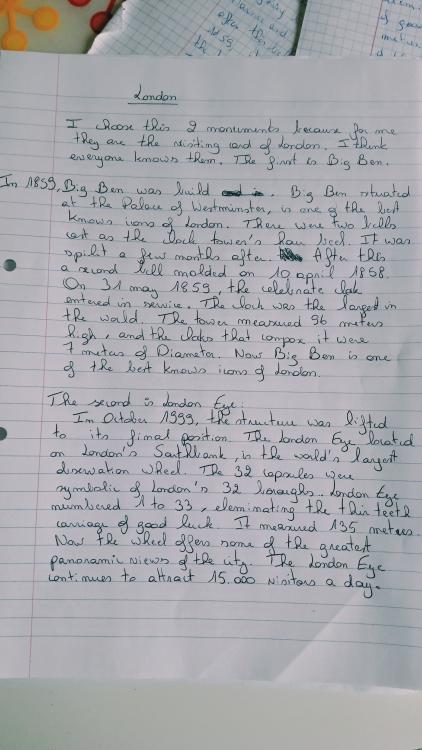 London
I choose this 2 monuments because for me
they are the visiting card of London. I think
everyone knows them. The first is Big Ben.
In 1859, Big Ben was build. Big Ben situated
at the Palace of Westminster, is one of the best
knows icons of London. There were two bells
cast as the clock tower's hour bell. It was
spilt a few months after. After this
a second bell molded on 10 april 1858.
On 31 may 1859, the celebrate clok
entered in service. The clock was the largest in
the world. The tower measured 96 meters
high, and the cloks that compox it were
7 meters of Diameter. Now Big Ben is one
of the best knows icons of London.
The second is London Eye:
In October 1999, the structure was lifted
to its final position. The London Eye located
on London's Southbank, is the world's largest
observation wheel. The 32 capsules were
symbolic of London's 32 boroughs. London Eye
numbered 1 to 33, eleminating the thirteeth
carriage of good luck. It measured 135 meters.
Now the wheel offers some of the greatest
panoramic views of the city. The London Eye
continues to attract 15.000 visitors a day.